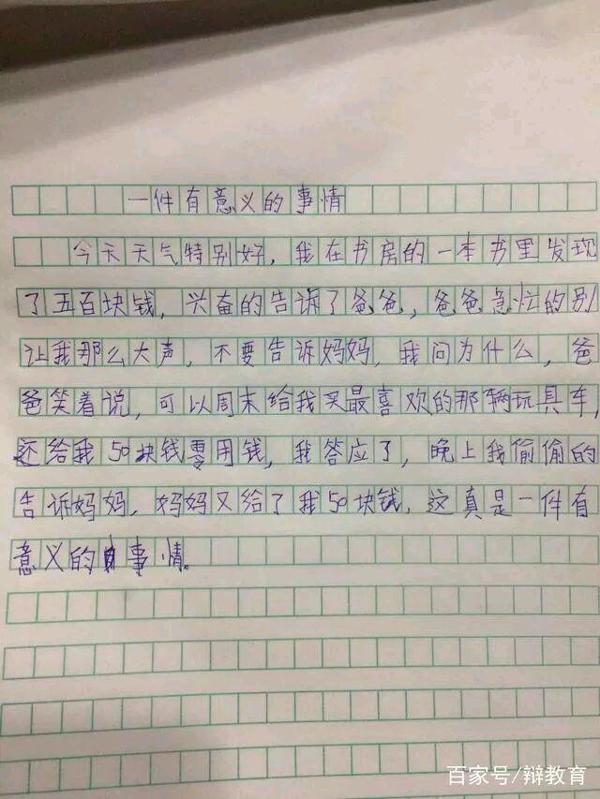 一件有意义的事情
今天天气特别好，我在书房的一本书里发现
了五百块钱，兴奋的告诉了爸爸，爸爸急忙的别
让我那么大声，不要告诉妈妈，我问为什么，爸
爸笑着说，可以周末给我买最喜欢的那辆玩具车，
还给我50块钱零用钱，我答应了，晚上我偷偷的
告诉妈妈，妈妈又给了我50块钱，这真是一件有
意义的事情。
百家号/辩教育